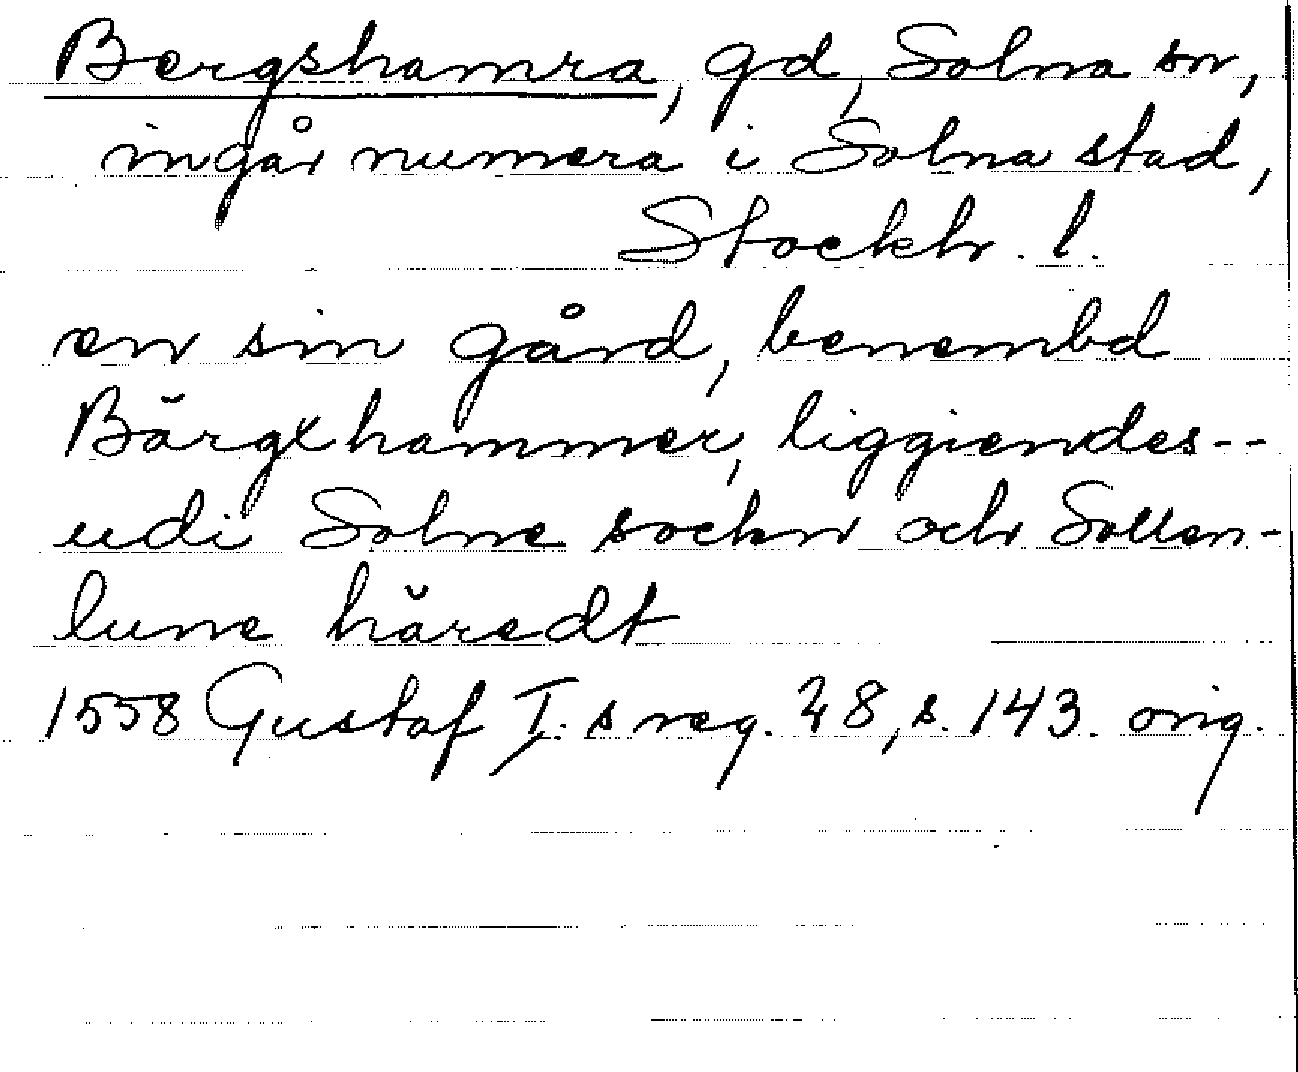 Bergshamra, gd, Solna sn,
ingår numera i Solna stad,
Stockh. l.
en sin gård, benembd
Bärgxhammer, liggiendes--
udi Solne sockn och Sollen-
lune häredt
1558 Gustaf I. s reg. 28, s. 143. orig.